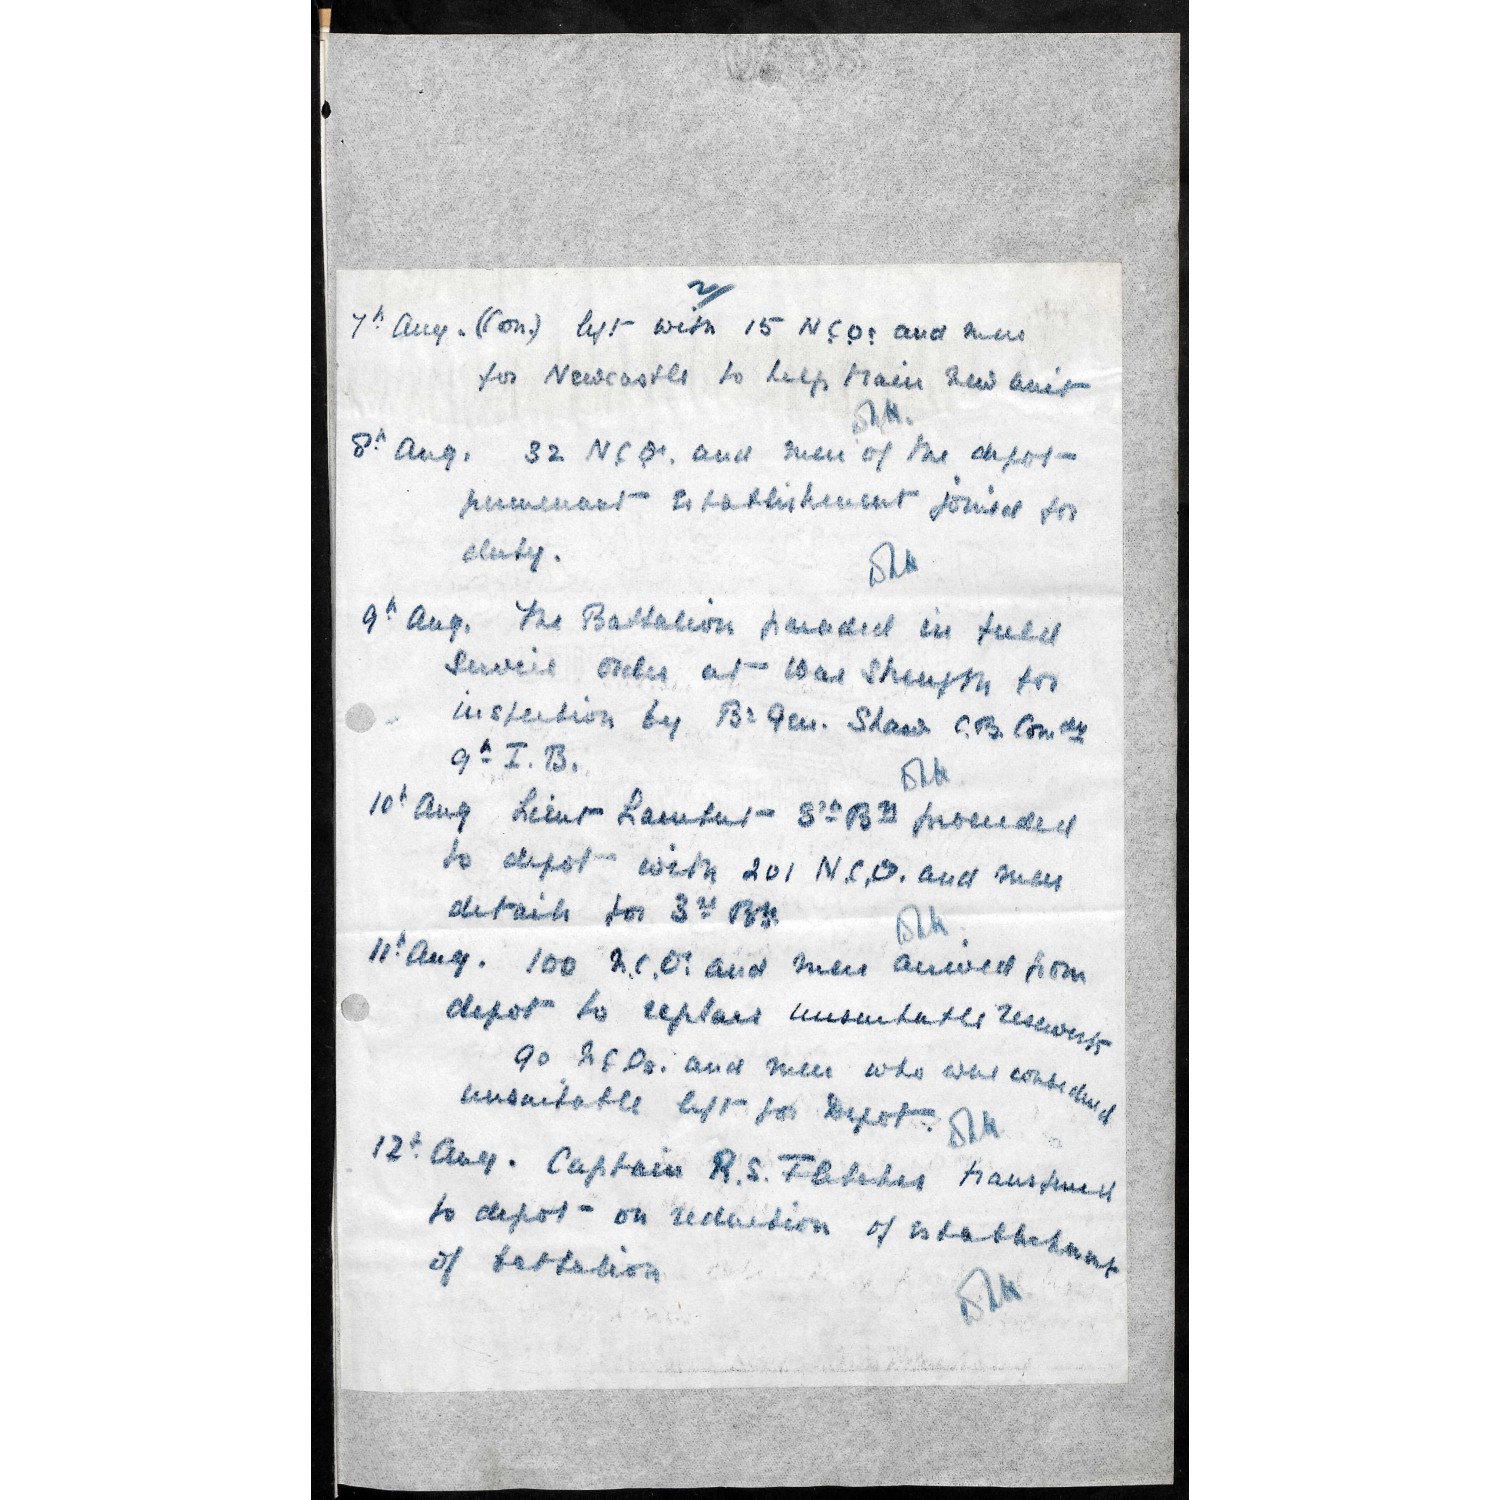 2/
7th Aug. (Con.) left with 15 N.C.Os and men
for Newcastle to help train new unit
8th Aug. 32 N.C.Os. and men of the depot
permenant establishement joined for
duty.
9th Aug. The Battalion paraded in field
Service order at War Strength for
inspection by Br. Gen. Shaw C.B. Comdg
9th I.B.
10th Aug Lieut Lambert 3rd Bn proceeded
to depot with 201 N.C.O. and men
details for 3rd Bn
11th Aug. 100 N.C.Os and men arrived from
depot to replace unsuitable reservists
90 N.C.Os. and men who were considered
unsuitable left for Depot.
12th Aug. Captain R.S. Fletcher transferred
to depot on reduction of establishment
of battalion